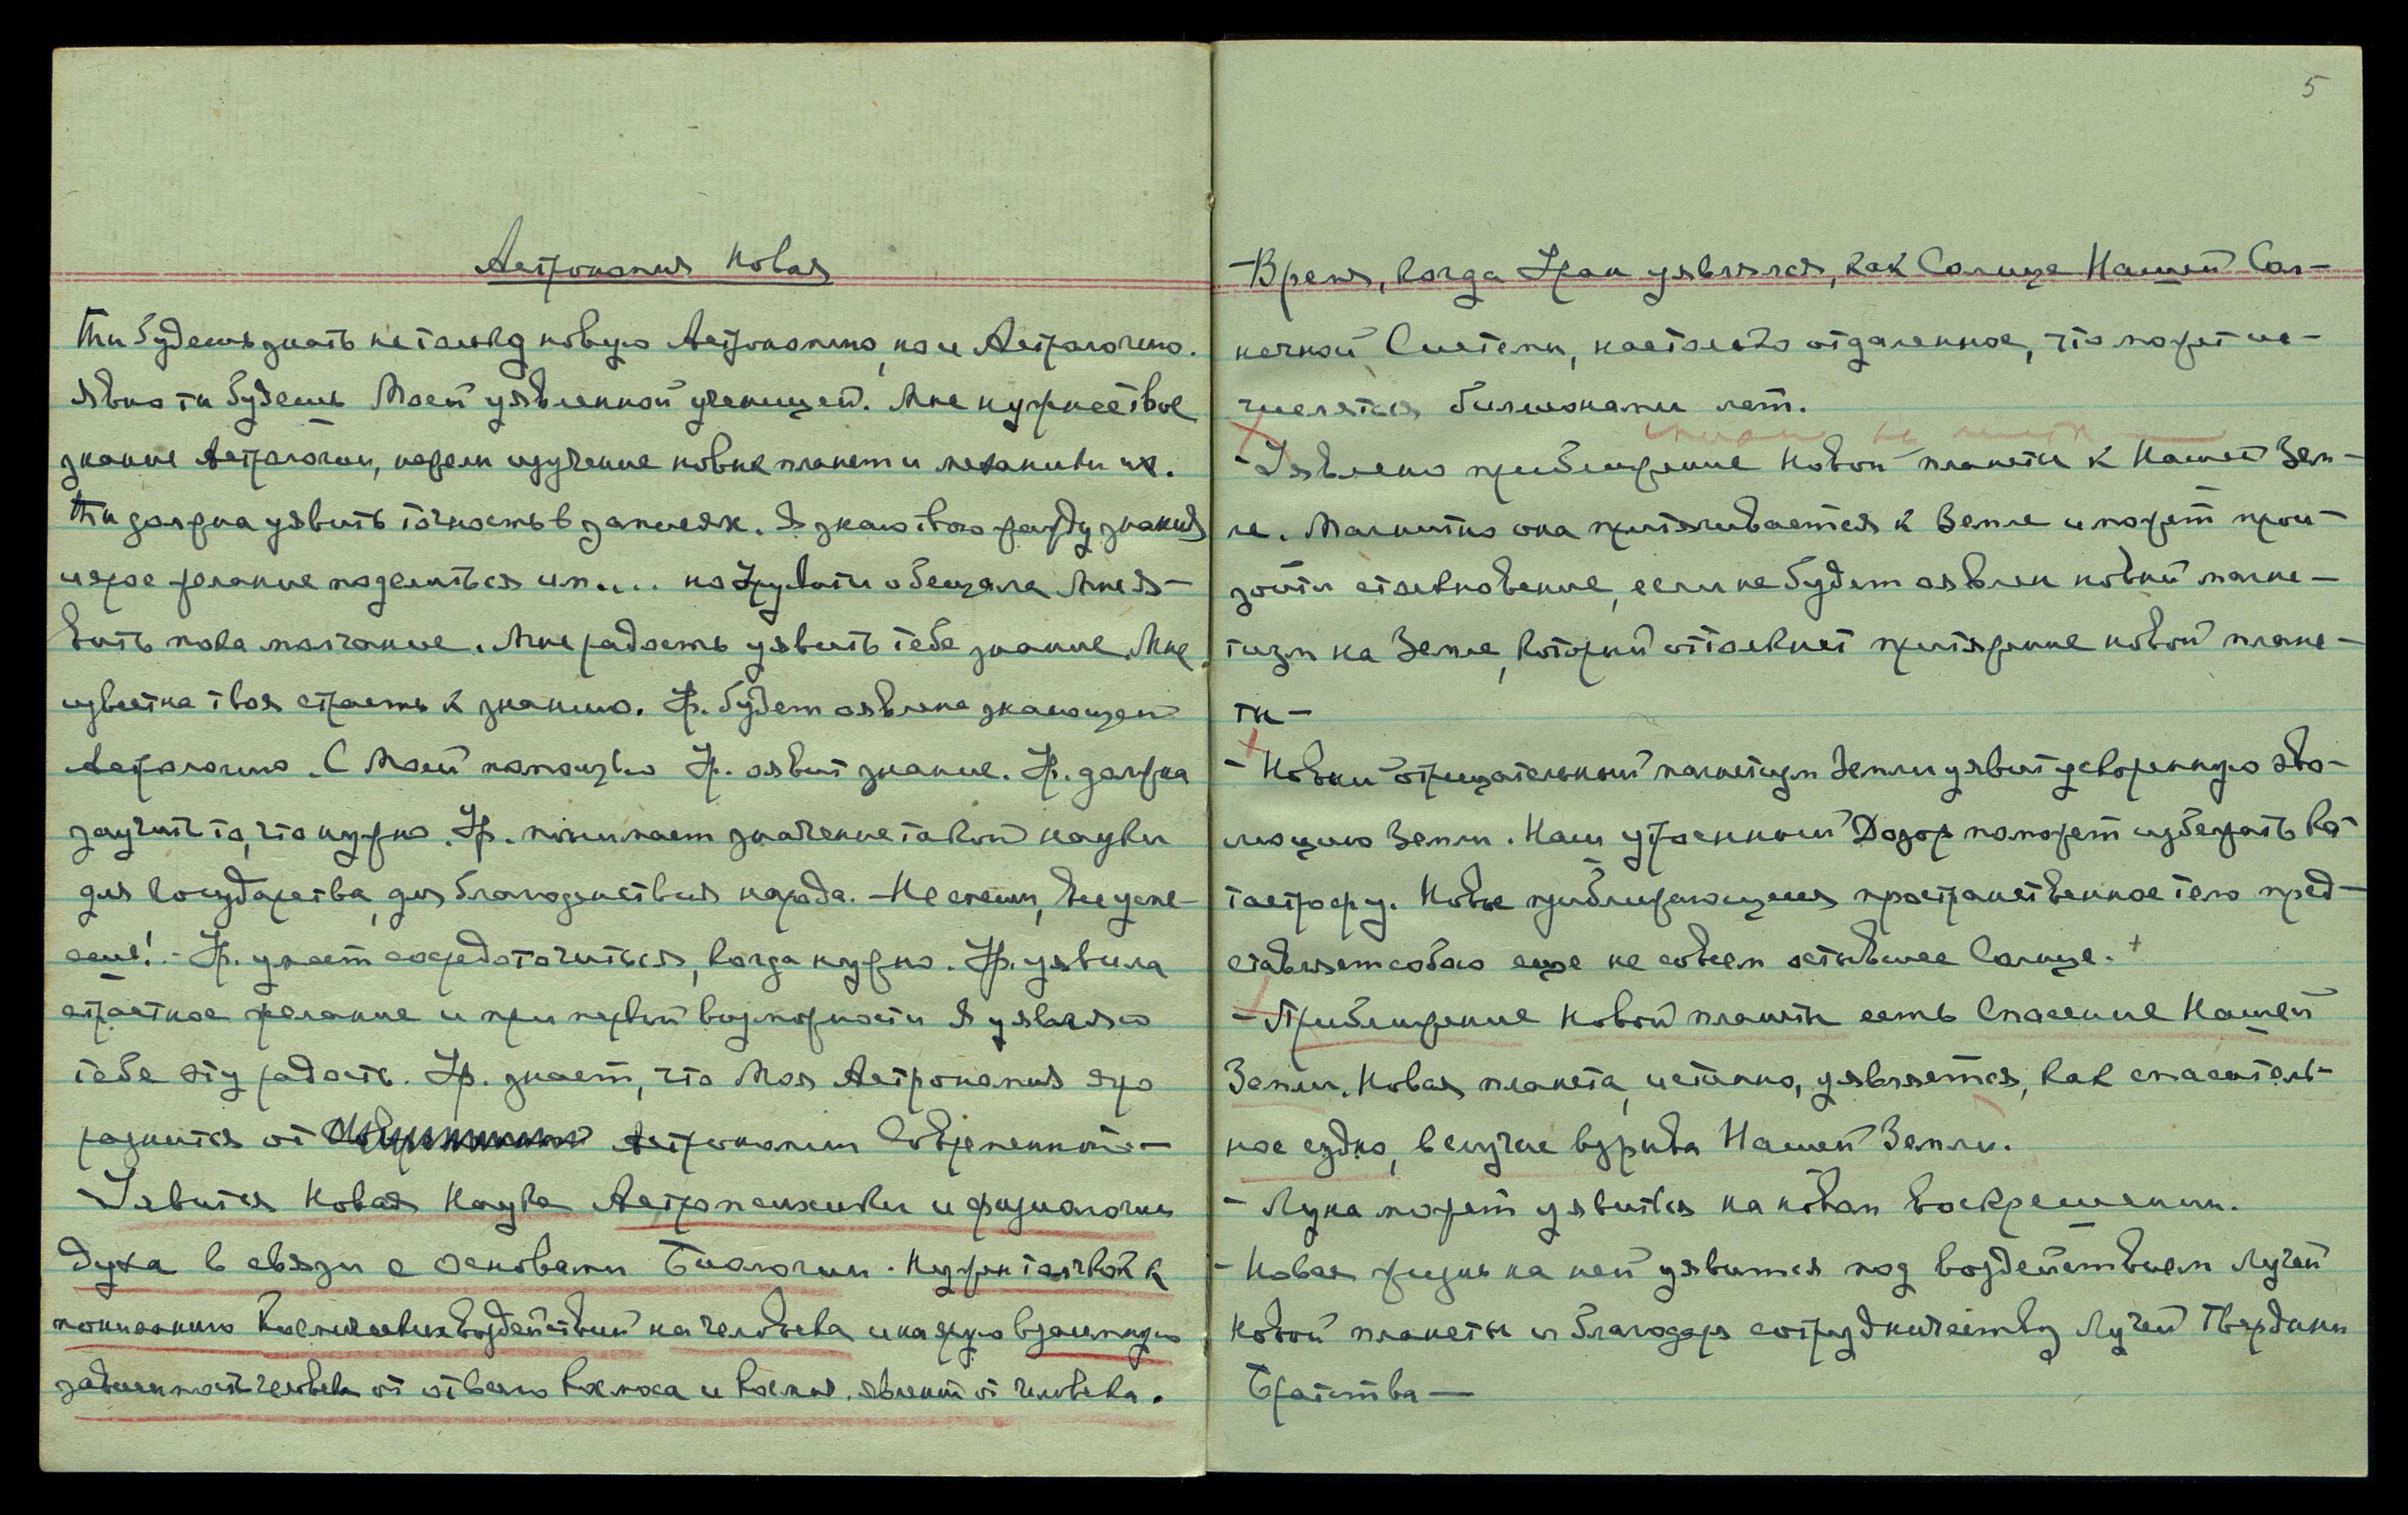 Астрономия Новая
Ты будешь знать не только новую Астрономию, но и Астрологию.
Явно ты будешь Моей уявленной ученицей. Мне нужнее твое
знание Астрологии, нежели изучение новых планет и механики их.
Ты должна уявить точность в записях. Я знаю твою жажду знания
и ярое желание поделиться им... но Урувати обещала Мне я-
вить пока молчание. Мне радость уявить тебе знание. Мне
известна твоя страсть к знанию. Ур. будет оявлена знающей
Астрологию. С Моей помощью Ур. оявит знание. Ур. должна
заучить то, что нужно. Ур. понимает значение такой науки
для Государства, для благоденствия народа. – Не спеши, все успе-
ешь! – Ур. умеет сосредоточиться, когда нужно. Ур. уявила
страстное желание и при первой возможности Я уявляю
тебе эту радость. Ур. знает, что Моя Астрономия яро
разнится от Астрономии Современной –
Уявится Новая Наука Астрохимии и физиологии
духа в связи с Основами Биологии. Нужен толчок к
пониманию космических воздействий на человека и на ярую взаимную
зависимость человека от космоса и космич. явлений от человека.
5
– Время, когда Уран уявлялся, как Солнце Нашей Сол-
нечной Системы, настолько отдаленное, что может ис-
числяться биллионами лет.
– Уявлено приближение Новой планеты к Нашей Зем-
ле. Магнитно она притягивается к Земле и может прои-
зойти столкновение, если не будет оявлен новый магне-
тизм на Земле, который оттолкнет притяжение новой плане-
ты –
– Новый отрицательный магнетизм Земли уявит ускоренную эво-
люцию Земли. Наш утроенный Дозор поможет избежать ка-
тастрофу. Новое приближающееся пространственное тело пред-
ставляет собою еще не совсем остывшее Солнце. +
– Приближение Новой планеты есть Спасение Нашей
Земли. Новая планета, истинно, уявляется, как спаситель-
ное судно, в случае взрыва Нашей Земли.
– Луна может уявиться на новом воскрешении.
– Новая жизнь на ней уявится под воздействием Лучей
Новой планеты и благодаря сотрудничеству Лучей Твердыни
Братства –